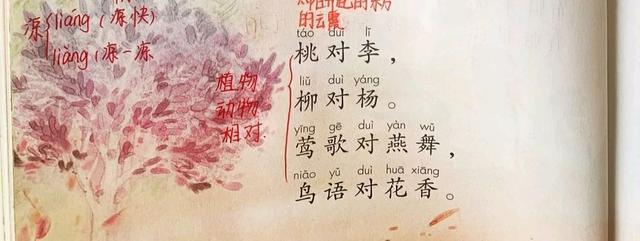 凉 liáng（凉快）
liàng（凉一凉
的云霞
植物
动物
相对
táo duì lǐ
桃对李，
liǔ duì yáng
柳对杨。
yīng gē duì yàn wǔ
莺歌对燕舞，
niǎo yǔ duì huā xiāng
鸟语对花香。